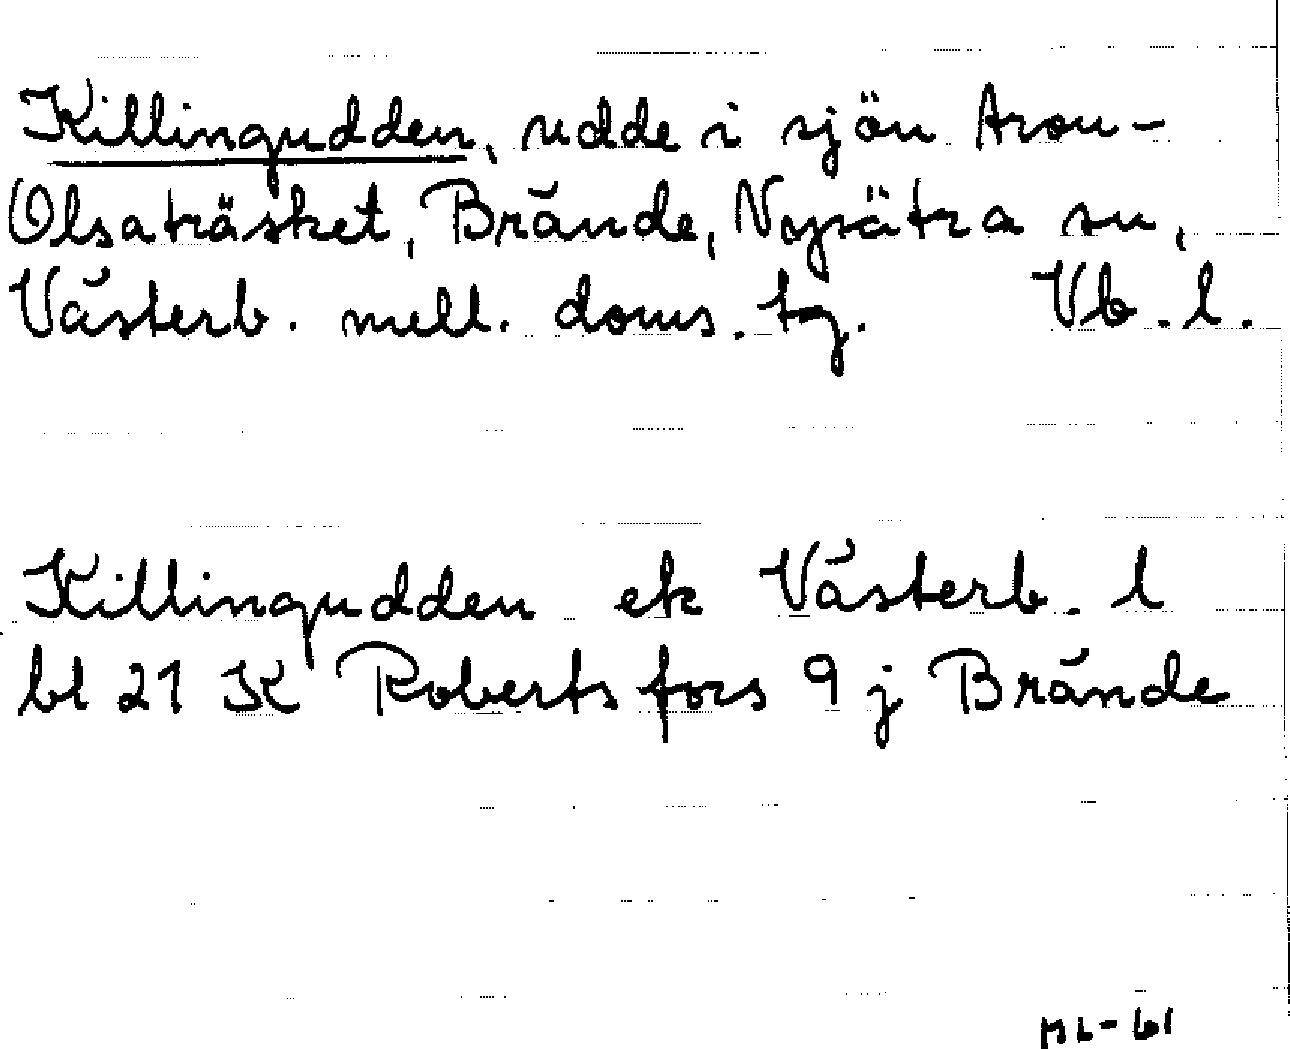 Killingudden, udde i sjön Aron-
Olsaträsket, Brände, Nysätra sn,
Västerb. mell. doms. tg. Vb. l.
Killingudden ek Västerb. l
bl 21 K Robertsfors 9 j Brände
ML-61